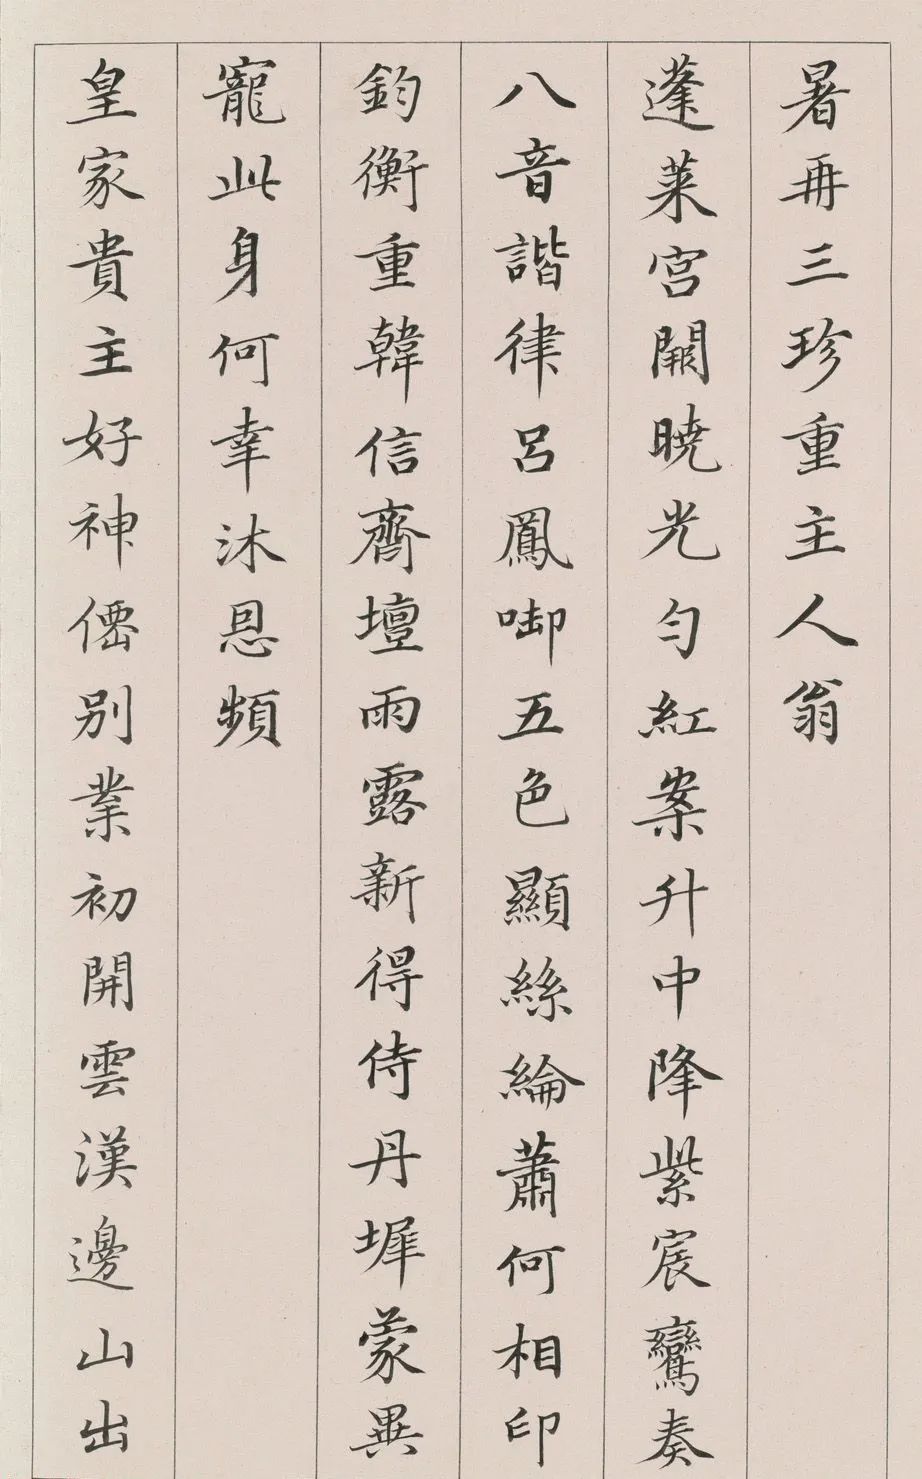 暑再三珍重主人翁
蓬萊宮闕曉光勻紅案升中降紫宸鸞奏
八音諧律呂鳳啣五色顯絲綸蕭何相印
鈞衡重韓信齊壇雨露新得侍丹墀蒙異
寵此身何幸沐恩頻
皇家貴主好神僊別業初開雲漢邊山出